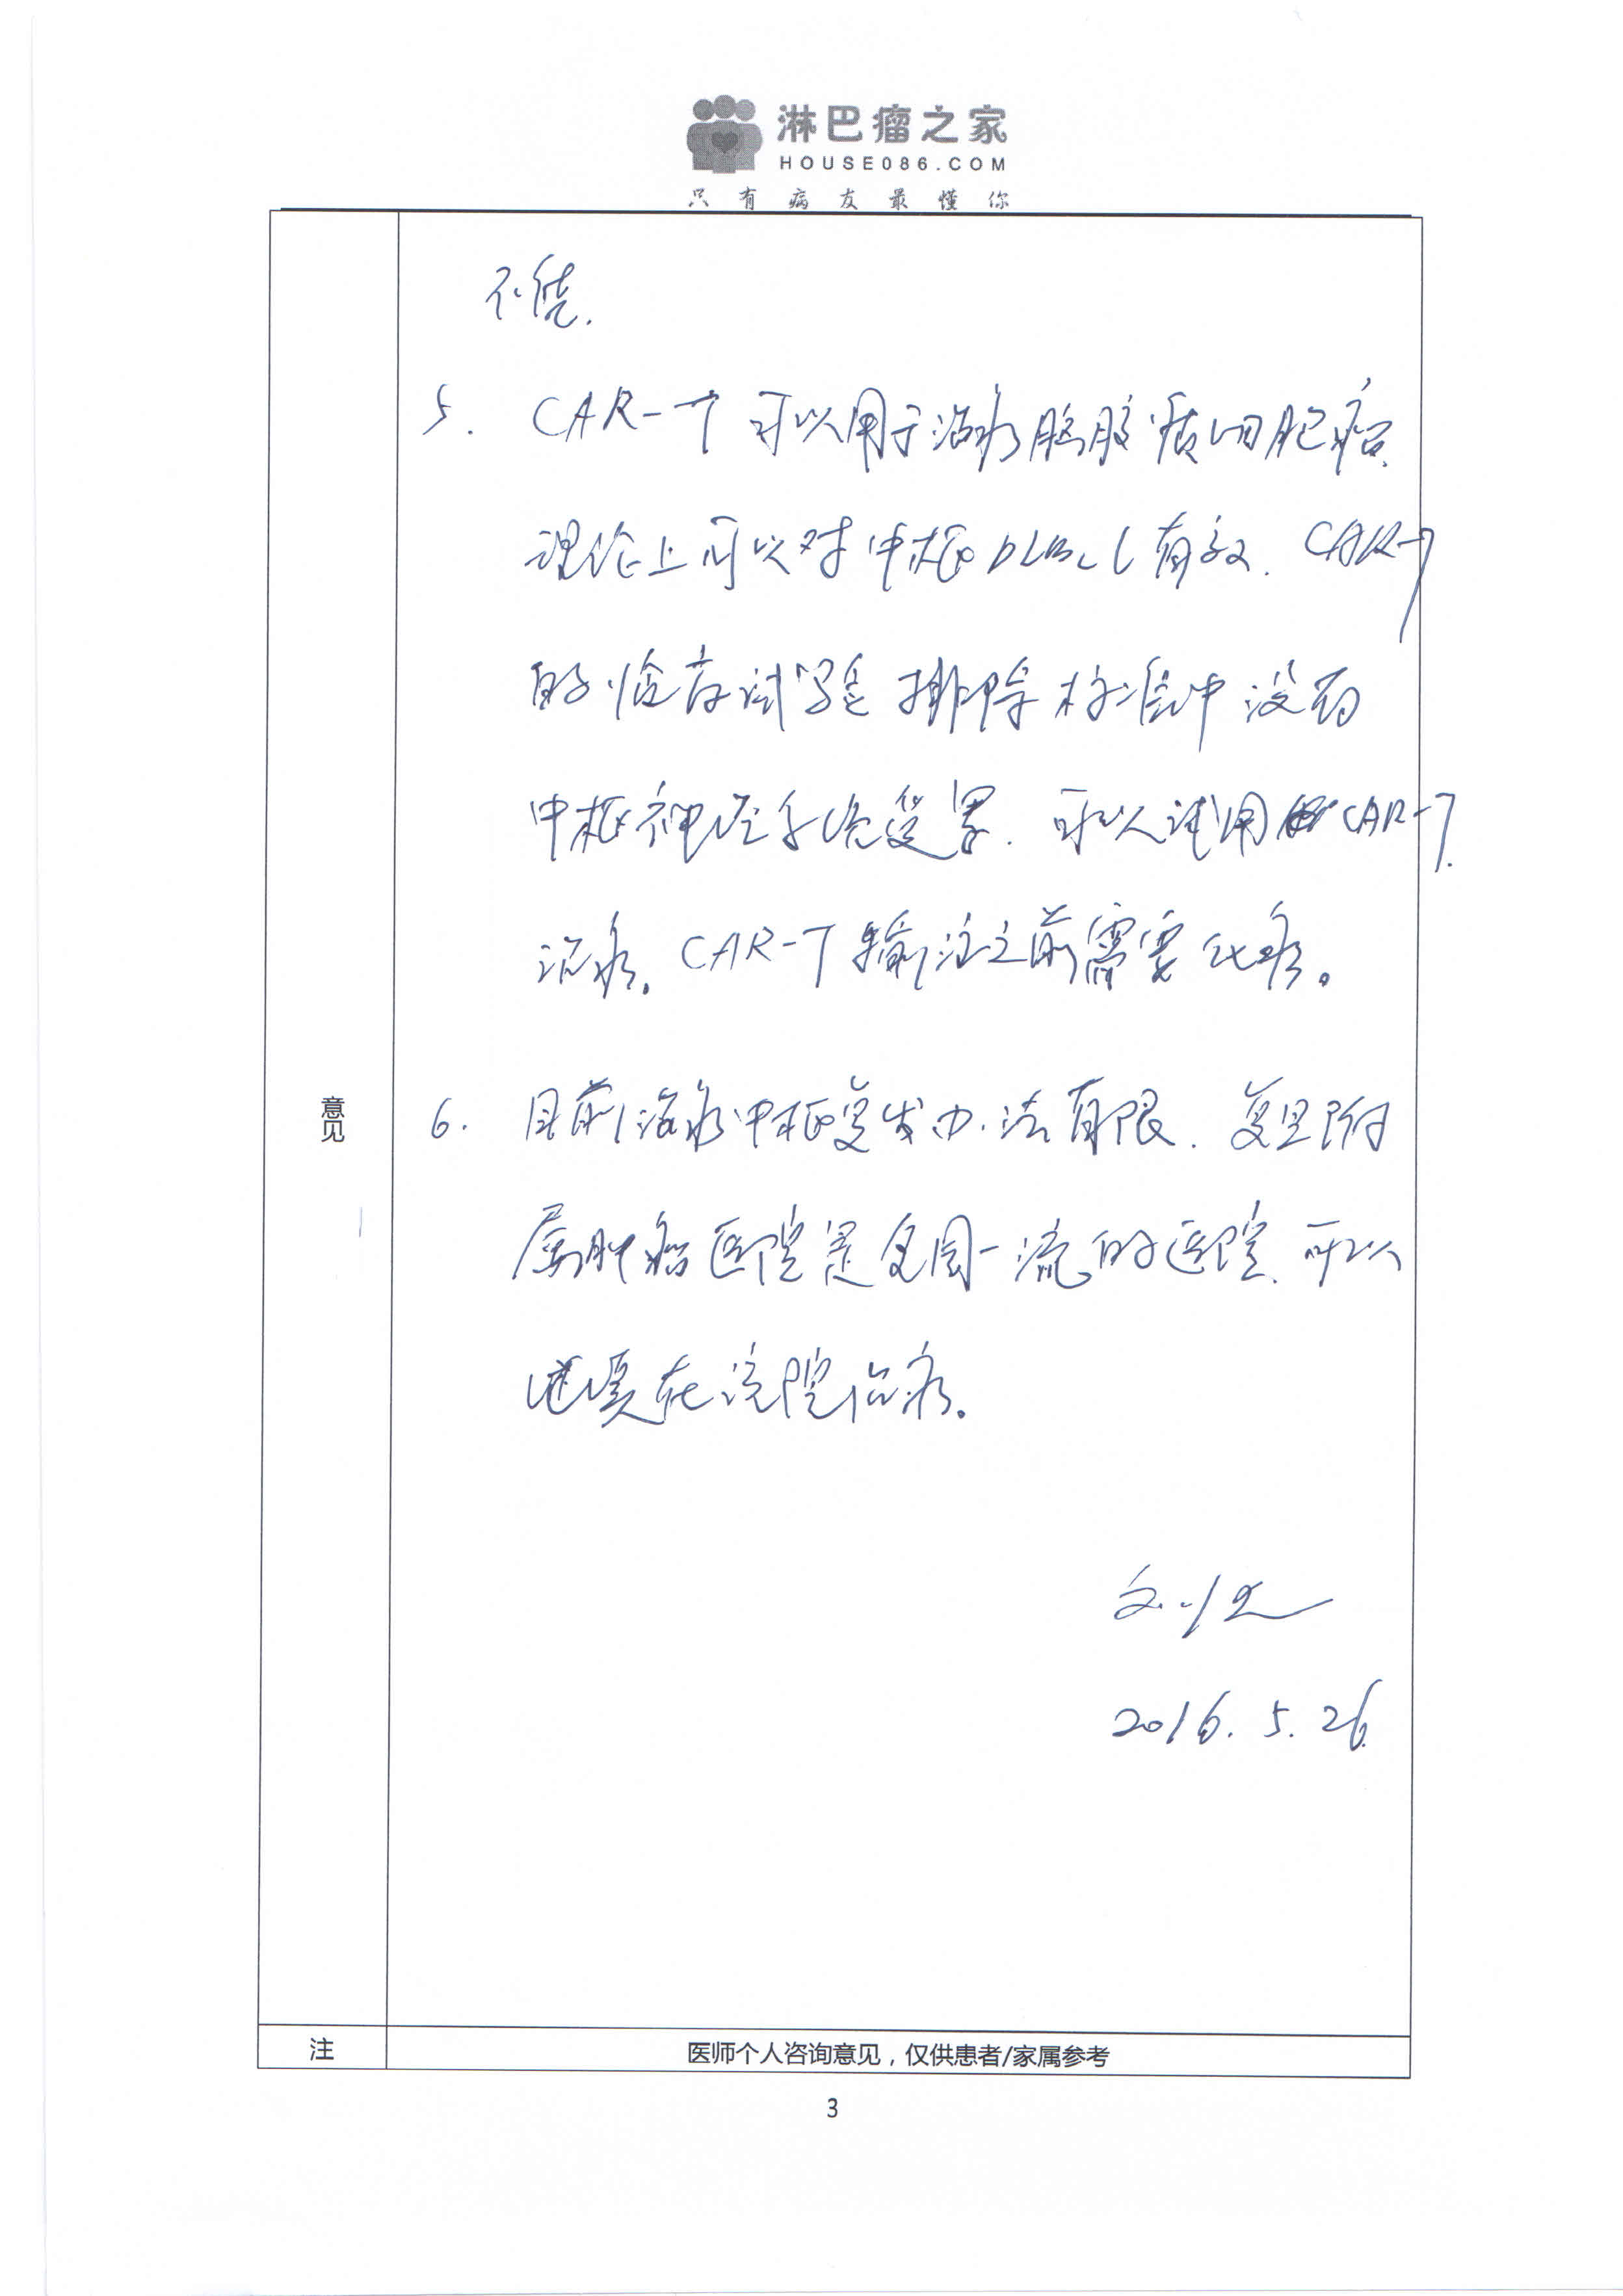 淋巴瘤之家
HOUSE086.COM
只有病友最懂你
不能.
5. CAR-T 可以用于治疗脑胶质细胞瘤.
理论上可以对中枢DLBCL有效. CAR-T
的临床试验排除标准中没有
中枢神经系统受累. 可以试用CAR-T
治疗。CAR-T 输注之前需要化疗。
意见
6. 目前治疗中枢复发办法有限. 复旦附
属肿瘤医院是全国一流的医院. 可以
继续在该院治疗。
2016.5.26.
注
医师个人咨询意见，仅供患者/家属参考
3